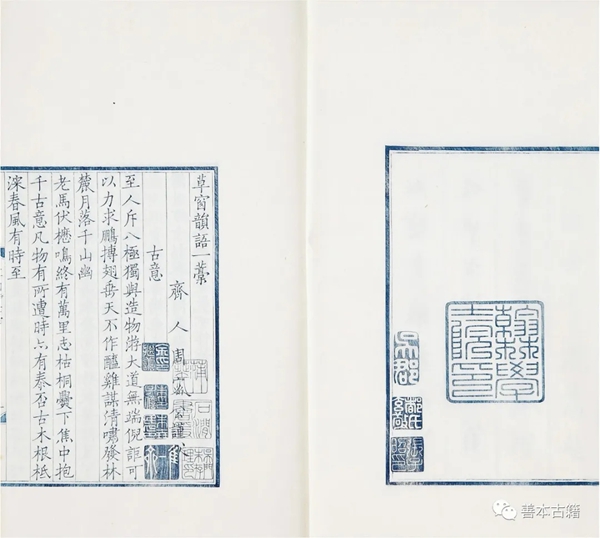 翰林學士院印
吳郡
草窗韻語一藁
齊人周密公謹
古意
至人斥八極獨與造物游大道無端倪詎可
以力求鵬摶翅垂天不作醯雞謀清嘯發林
麓月落千山幽
老馬伏櫪鳴終有萬里志枯桐爨下焦中抱
千古意凡物有所遭時亦有泰否古木根柢
深春風有時至
善本古籍